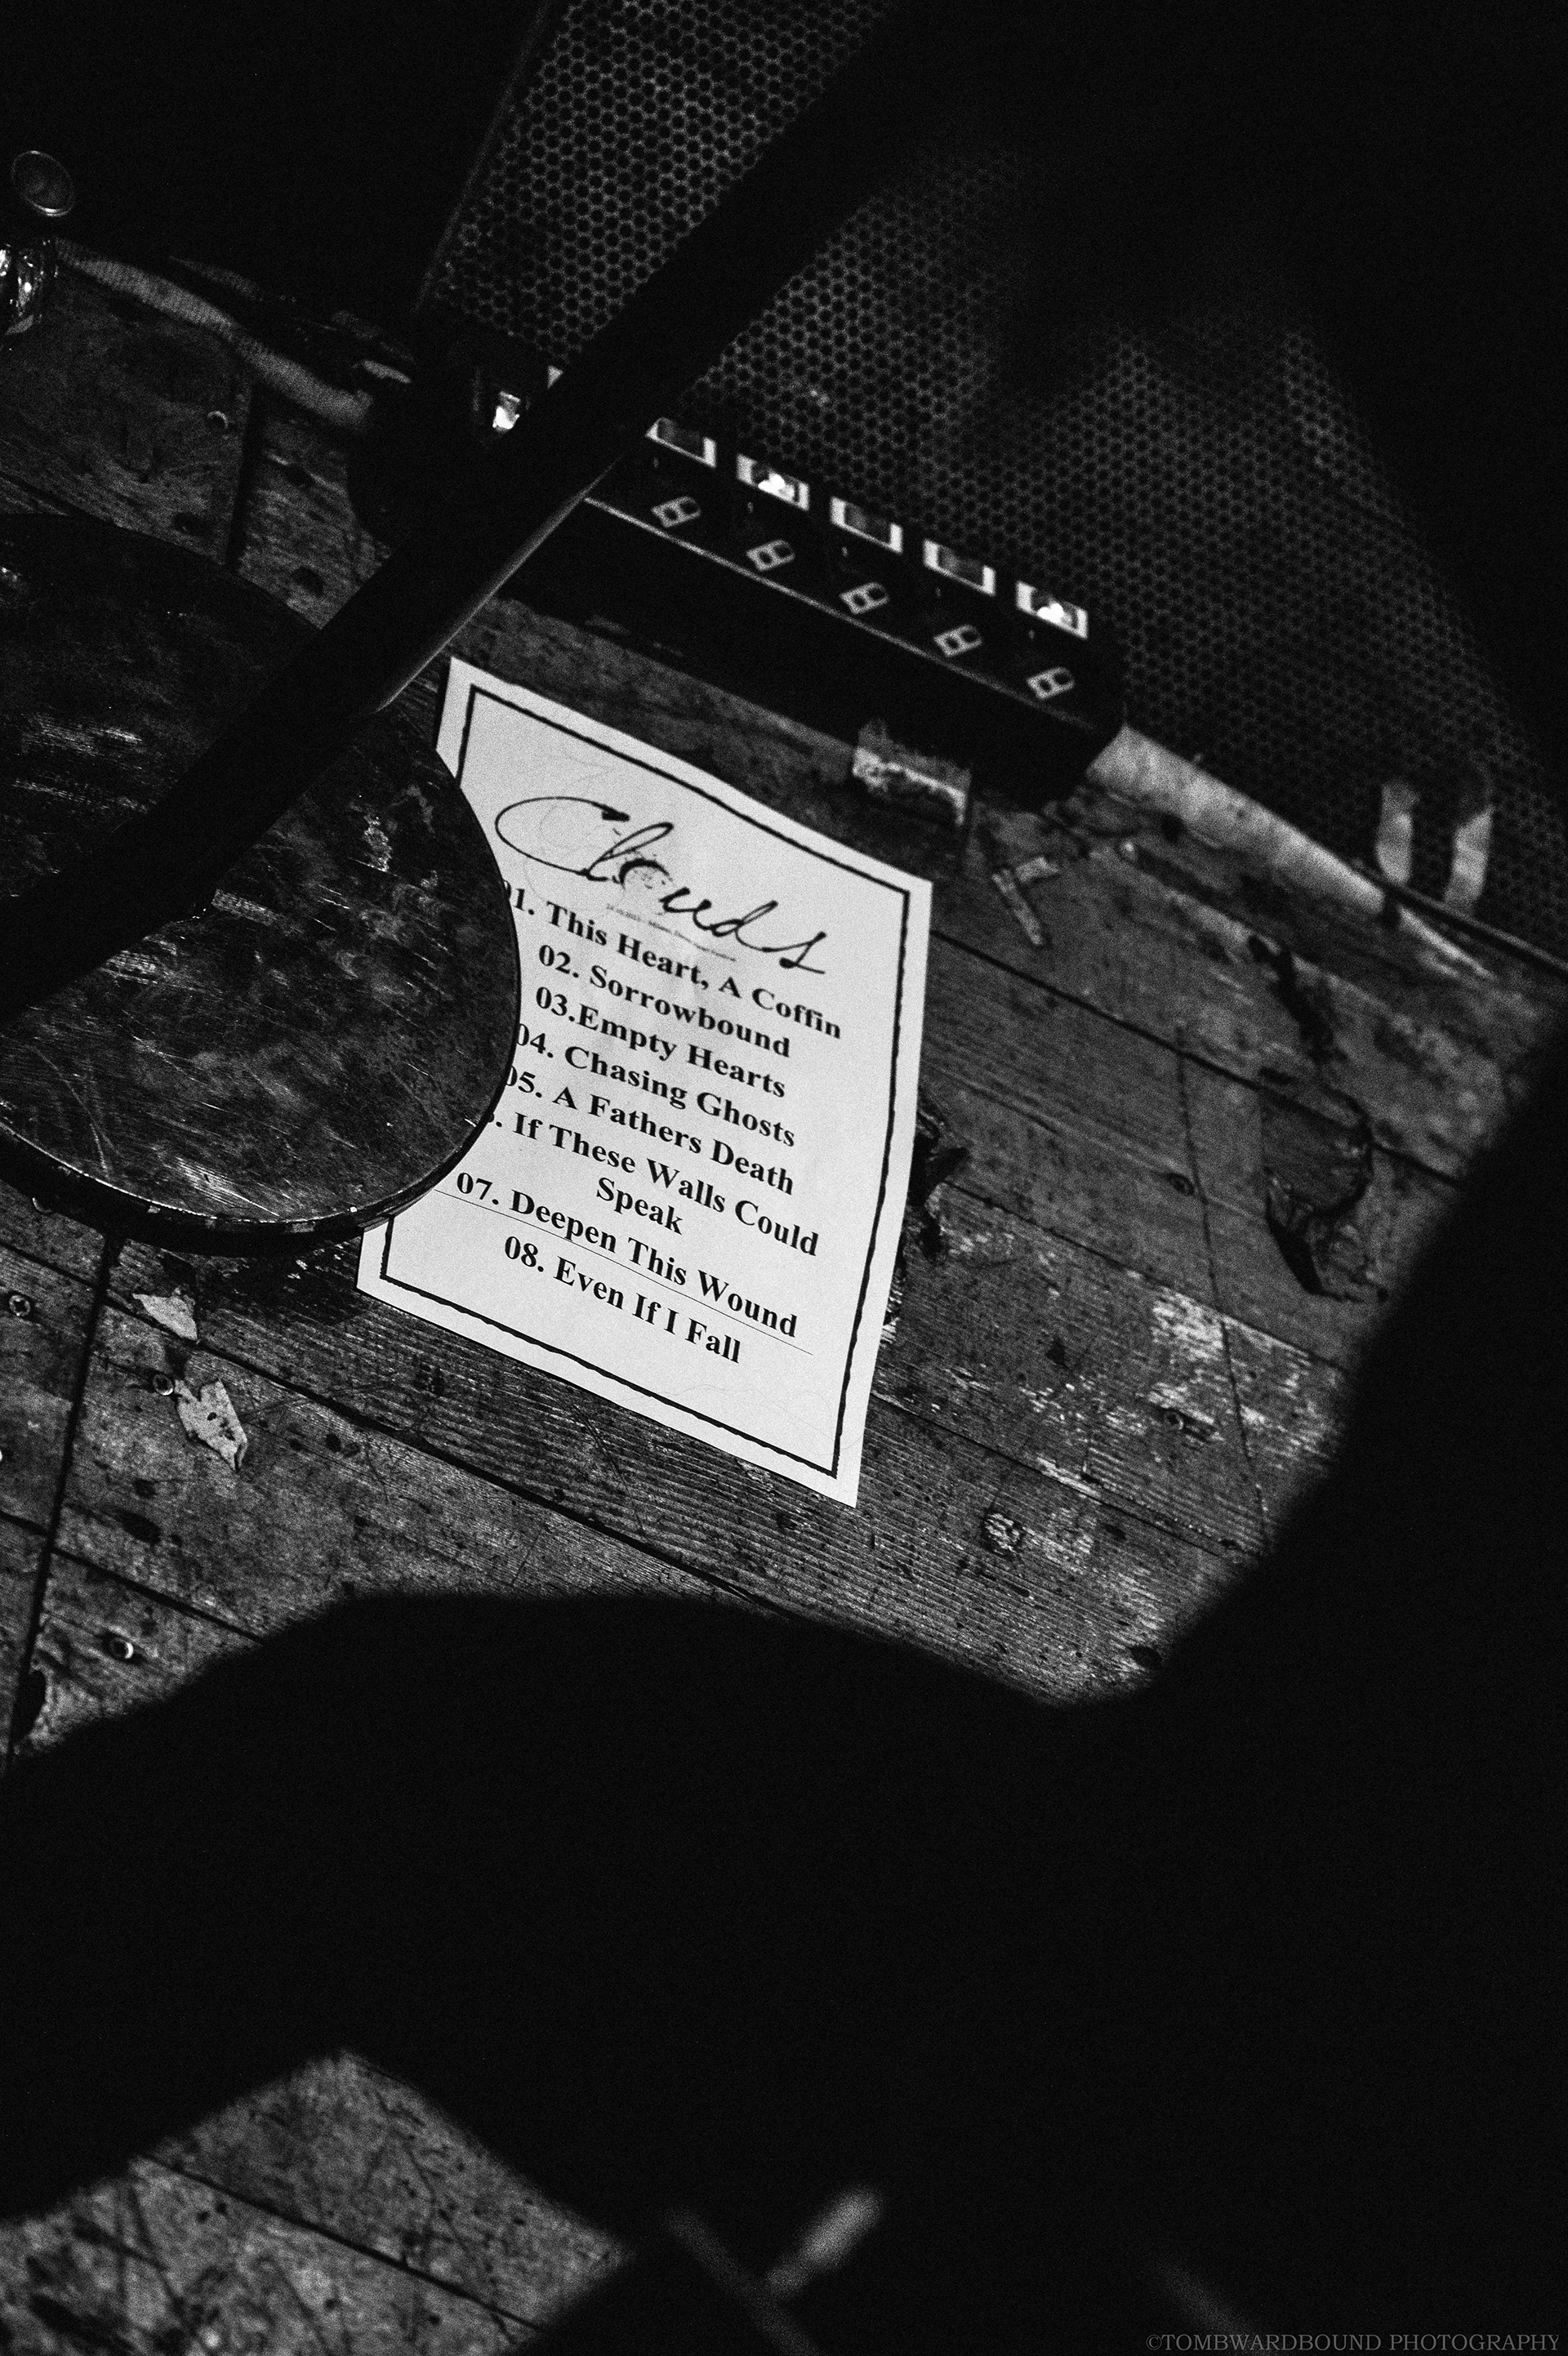 Clouds
01. This Heart, A Coffin
02. Sorrowbound
03.Empty Hearts
04. Chasing Ghosts
05. A Fathers Death
. If These Walls Could
Speak
07. Deepen This Wound
08. Even If I Fall
©TOMBWARDBOUND PHOTOGRAPHY